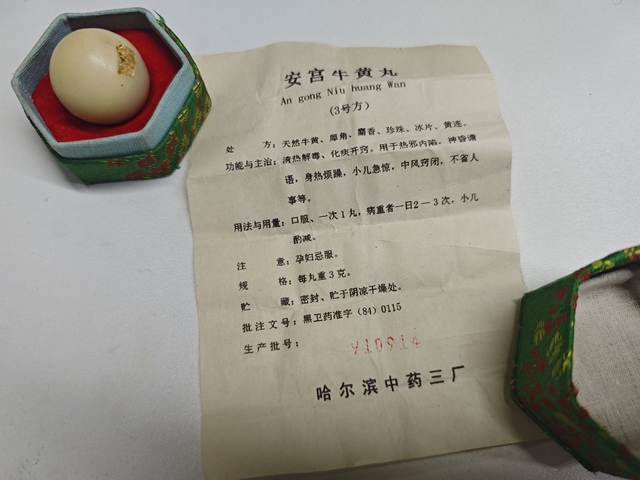 安宫牛黄丸
An gong Niu huang Wan
(3号方)
处 方：天然牛黄、犀角、麝香、珍珠、冰片、黄连。
功能与主治：清热解毒、化痰开窍。用于热邪内陷，神昏谵
语，身热烦躁，小儿急惊，中风窍闭，不省人
事等。
用法与用量：口服、一次1丸，病重者一日2－3次，小儿
酌减。
注 意：孕妇忌服。
规 格：每丸重3克。
贮 藏：密封、贮于阴凉干燥处。
批注文号：黑卫药准字(84)0115
生产批号：
哈尔滨中药三厂